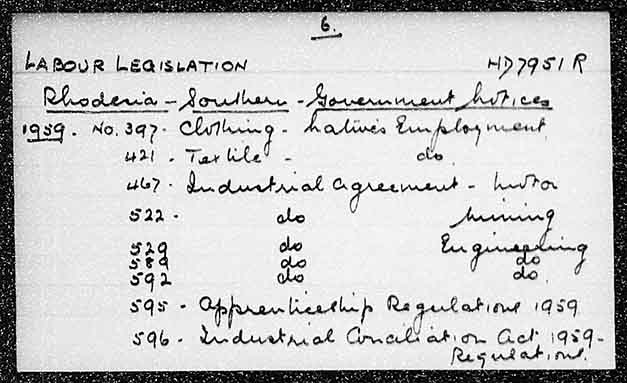 6.
LABOUR LEGISLATION HD7951 R
Rhodesia - Southern - Government Notices
1959. No. 397. Clothing - Natives Employment
421. Textile - do.
467. Industrial Agreement - Motor
522. do Mining
529 do Engineering
589 do do
592 do do.
595 - Apprenticeship Regulations 1959
596. Industrial Conciliation Act 1959 -
Regulations.